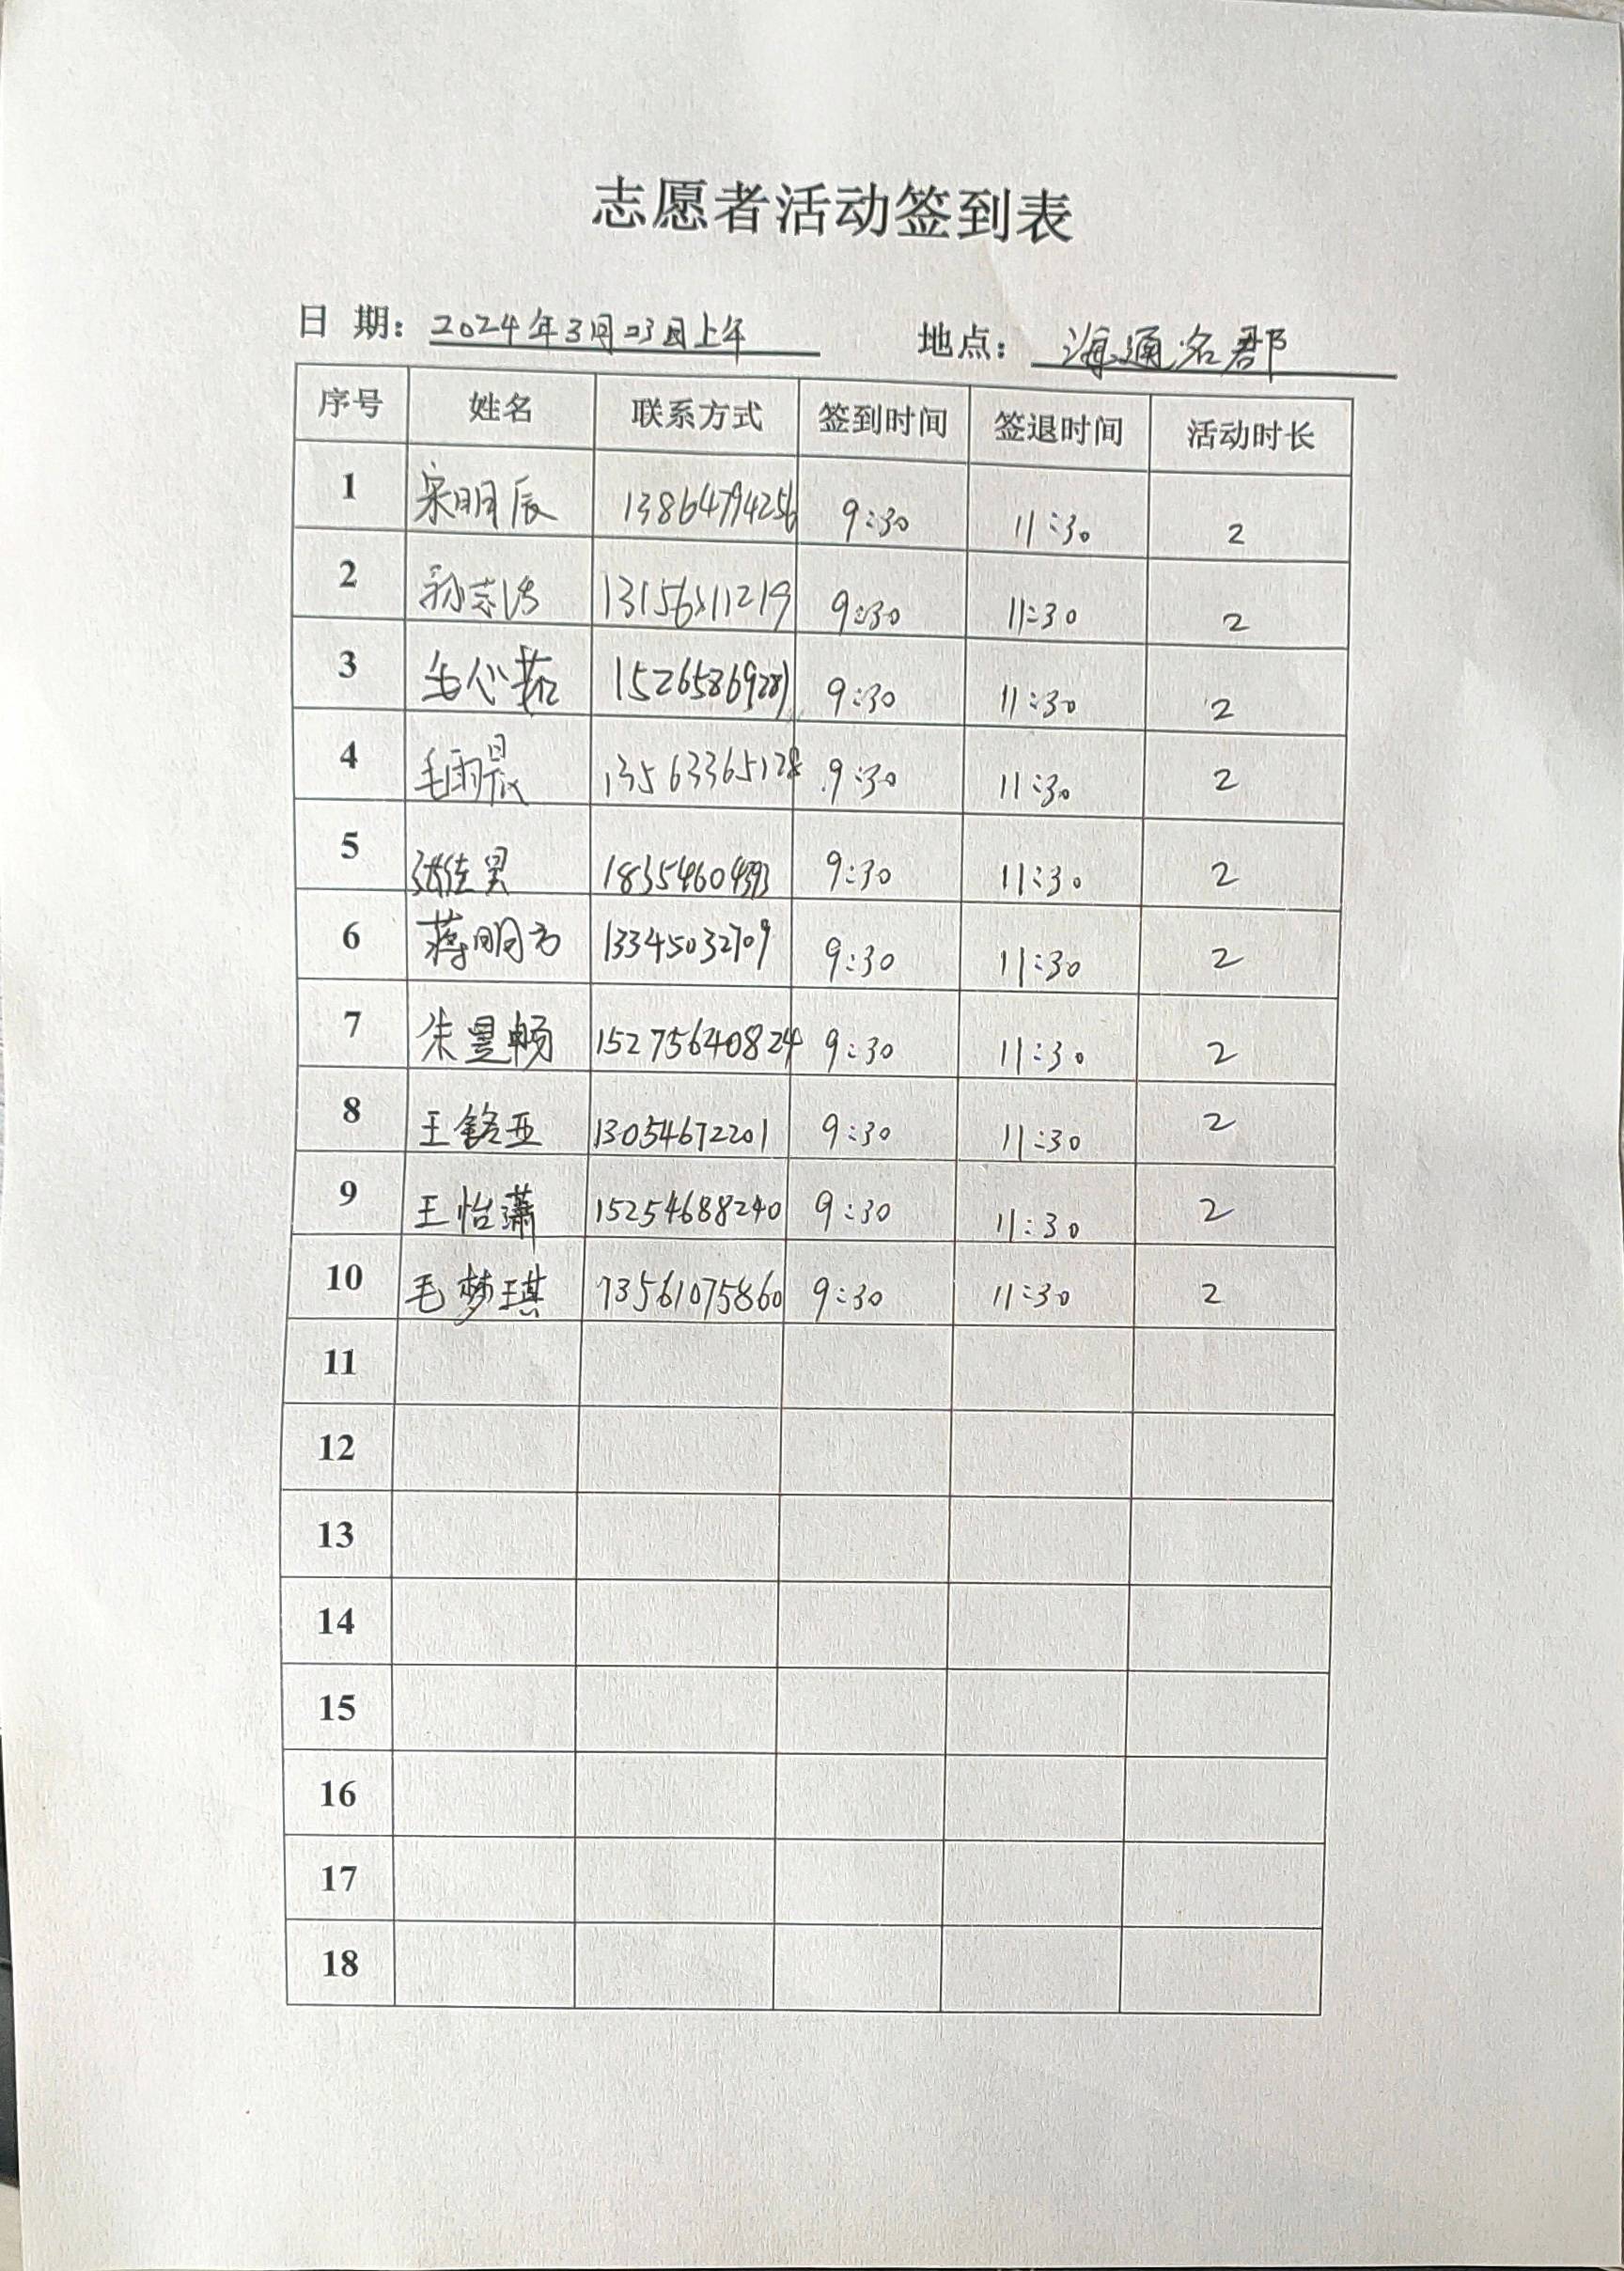 志愿者活动签到表
日 期：2024年3月23日上午 地点：海通名郡
序号 姓名 联系方式 签到时间 签退时间 活动时长
1 宋明辰 13864794256 9:30 11:30 2
2 孙志浩 9:30 11:30 2
3 心茹 15265869281 9:30 11:30 2
4 毛雨晨 13563365128 9:30 11:30 2
5 张佳昊 18354604393 9:30 11:30 2
6 蒋明方 13345032709 9:30 11:30 2
7 朱昱畅 15275640824 9:30 11:30 2
8 王铭亚 13054672201 9:30 11:30 2
9 王怡潇 15254688240 9:30 11:30 2
10 毛梦琪 13561075860 9:30 11:30 2
11
12
13
14
15
16
17
18